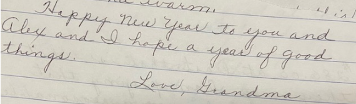 warm.
Happy New Year to you and
Alex and I hope a year of good
things.
Love, Grandma